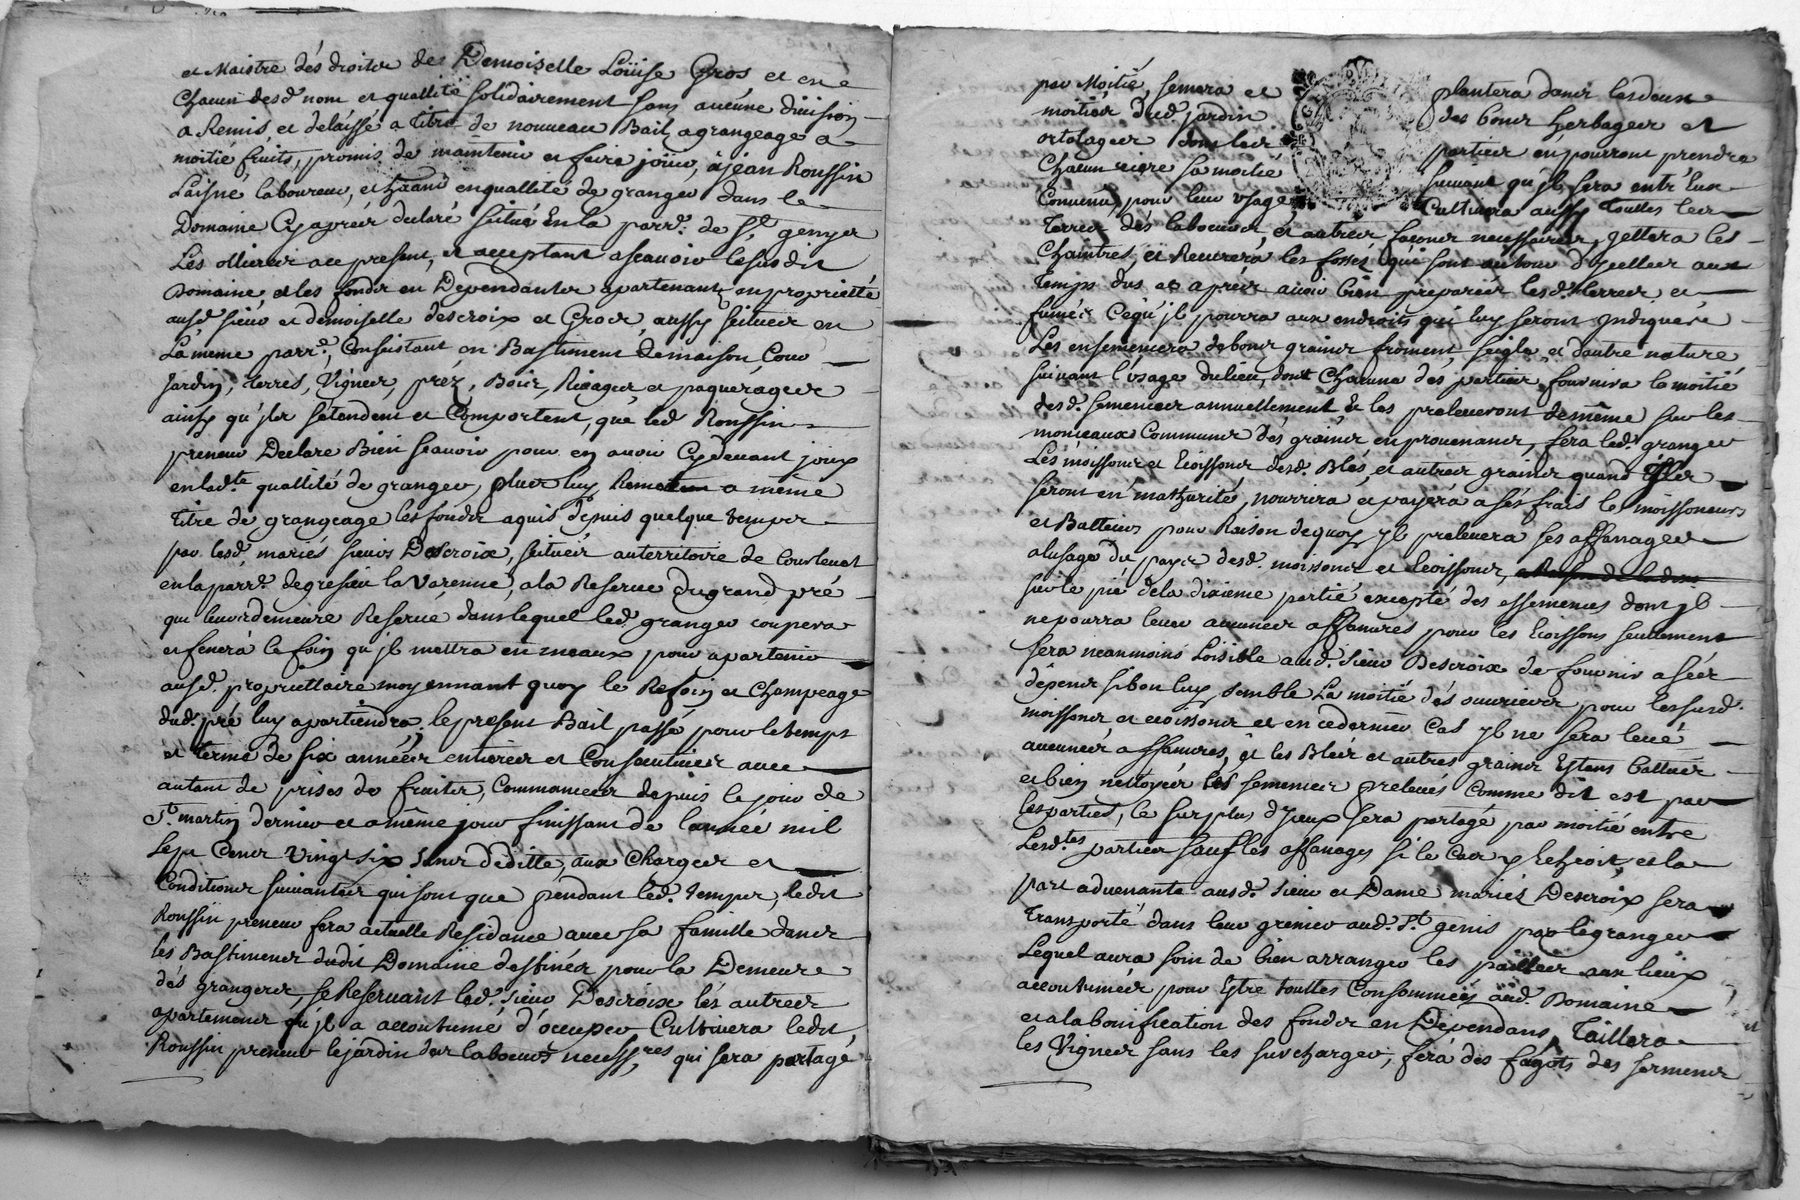 et Maistre dés droits de Demoiselle Loüise Gros et en
Chacun desd. nom et quallité solidairement sans aucune division
a Remis et delaissé a titre de nouveau Bail a grangeage a
moitié fruits, promis de maintenir et faire jouir, a jean Roussin
Laisné laboureur, et habitant en quallité de granger dans le
Domaine Cy aprés declaré scitué En la parr.e de St genys
Les ollieres ace present, et acceptant ascavoir le susdit
Domaine, et les fonds en Dependants apartenants en proprietté
ausd. sieur et demoiselle descroix et Gros, aussy scitués en
La même parr.e Consistant en Bastiment de maison, Cour
Jardin, terres, Vignes, préz, Bois, Rivages et paquerages
ainsy qu'jls setendent et Comportent, que led Roussin
preneur Declare Bien scavoir pour en avoir Cydevant joux
en lad.te quallité de granger, plus luy Remettent a même
titre de grangeage les fonds aquis depuis quelque temps
par lesd. mariés sieurs Descroix, scitués au territoire de Courtenat
en la parr.e de gresieu la Varenne, a la Reserve du grand pré
qui leur demeure Reservé dans lequel led. granger coupera
et fenera le foin qu'jl mettra en meaux pour apartenir
ausd. propriettaire moyennant quoy le Refoin et Champeage
dud. pré luy apartiendra, le present Bail passé pour le temps
et terme de six années entieres et Consecutives avec
autant de prises de fruits, Commencées depuis le jour de
St. martin dernier et a même jour finissant de l'année mil
Sept Cents Vingt six sans deditte, aux Charges et
Conditions suivantes qui sont que pendant led. temps, ledit
Roussin preneur fera actuelle Residance avec sa famille dans
les Bastiments dudit Domaine destinés pour la Demeure
dés grangers, se Reservant led. sieur Descroix lés autres
apartements qu'jl a accoutumé d'occuper Cultivera ledit
Roussin preneur le jardin des labours necess.res qui sera partagé
par Moitié, semera et plantera dans les deux
moitiés dud. jardin des bons herbages et
ortolages dont les parties en pourront prendre
Chacun sa moitié suivant qu'jl sera entr'Eux
Convenu pour leur Vsage Cultivera aussy touttes les
terres dés labours, et autres façons necessaires, jettera les
Chaintres, et Recurera les fossés qui sont autour d'jcelles aux
temps dus et aprés avoir bien preparés lesd. terres, et
fumés Ce qu'jl pourra aux endroits qui luy seront jndiqués
Les ensemencera de bons grains froment, seigle, et d'autre nature
suivant l'usage du lieu, dont Chacune dés parties fournira la moitié
desd. semences annuellement Et les preleveront de même sur les
monceaux Communs dés grains en provenants, fera led. granger
Les moissons et Ecossons desd. Blés, et autres grains quand Elles
seront en mathurité, nourrira et payera a sés frais le moissoneurs
et Batteurs pour Raison de quoy jl prelevera ses affanages
a lusage du pays desd. moissons et Ecossons,
sur le pié de la dixieme partie excepté des semences dont jl
ne pourra lever aucunes affanures pour les Ecossons seulement
sera neanmoins Loisible aud. sieur Descroix de fournir a sés
dépens si bon luy semble La moitié dés ouvriers pour les susd.
moissons et ecossons et en cedernier Cas jl ne sera levé
aucunes affanures, et les Bleds et autres grains Estans battues
et bien nettoyés les semences prelevés Comme dit est par
les parties, le surplus d'jceux sera partagé par moitié entre
Lesd.tes parties sauf les affanages si le Cas y Echeoit, et la
part advenante ausd. sieur et Dame mariés Descroix sera
transporté dans leur grenier aud. St genis par le granger
Lequel aura soin de bien arranger les pailles aux lieux
accoutumés pour Estre touttes Consommées aud. Domaine
et a la bonification des fonds en Dependans, Taillera
les Vignes sans les surcharger, fera des fagots des serments